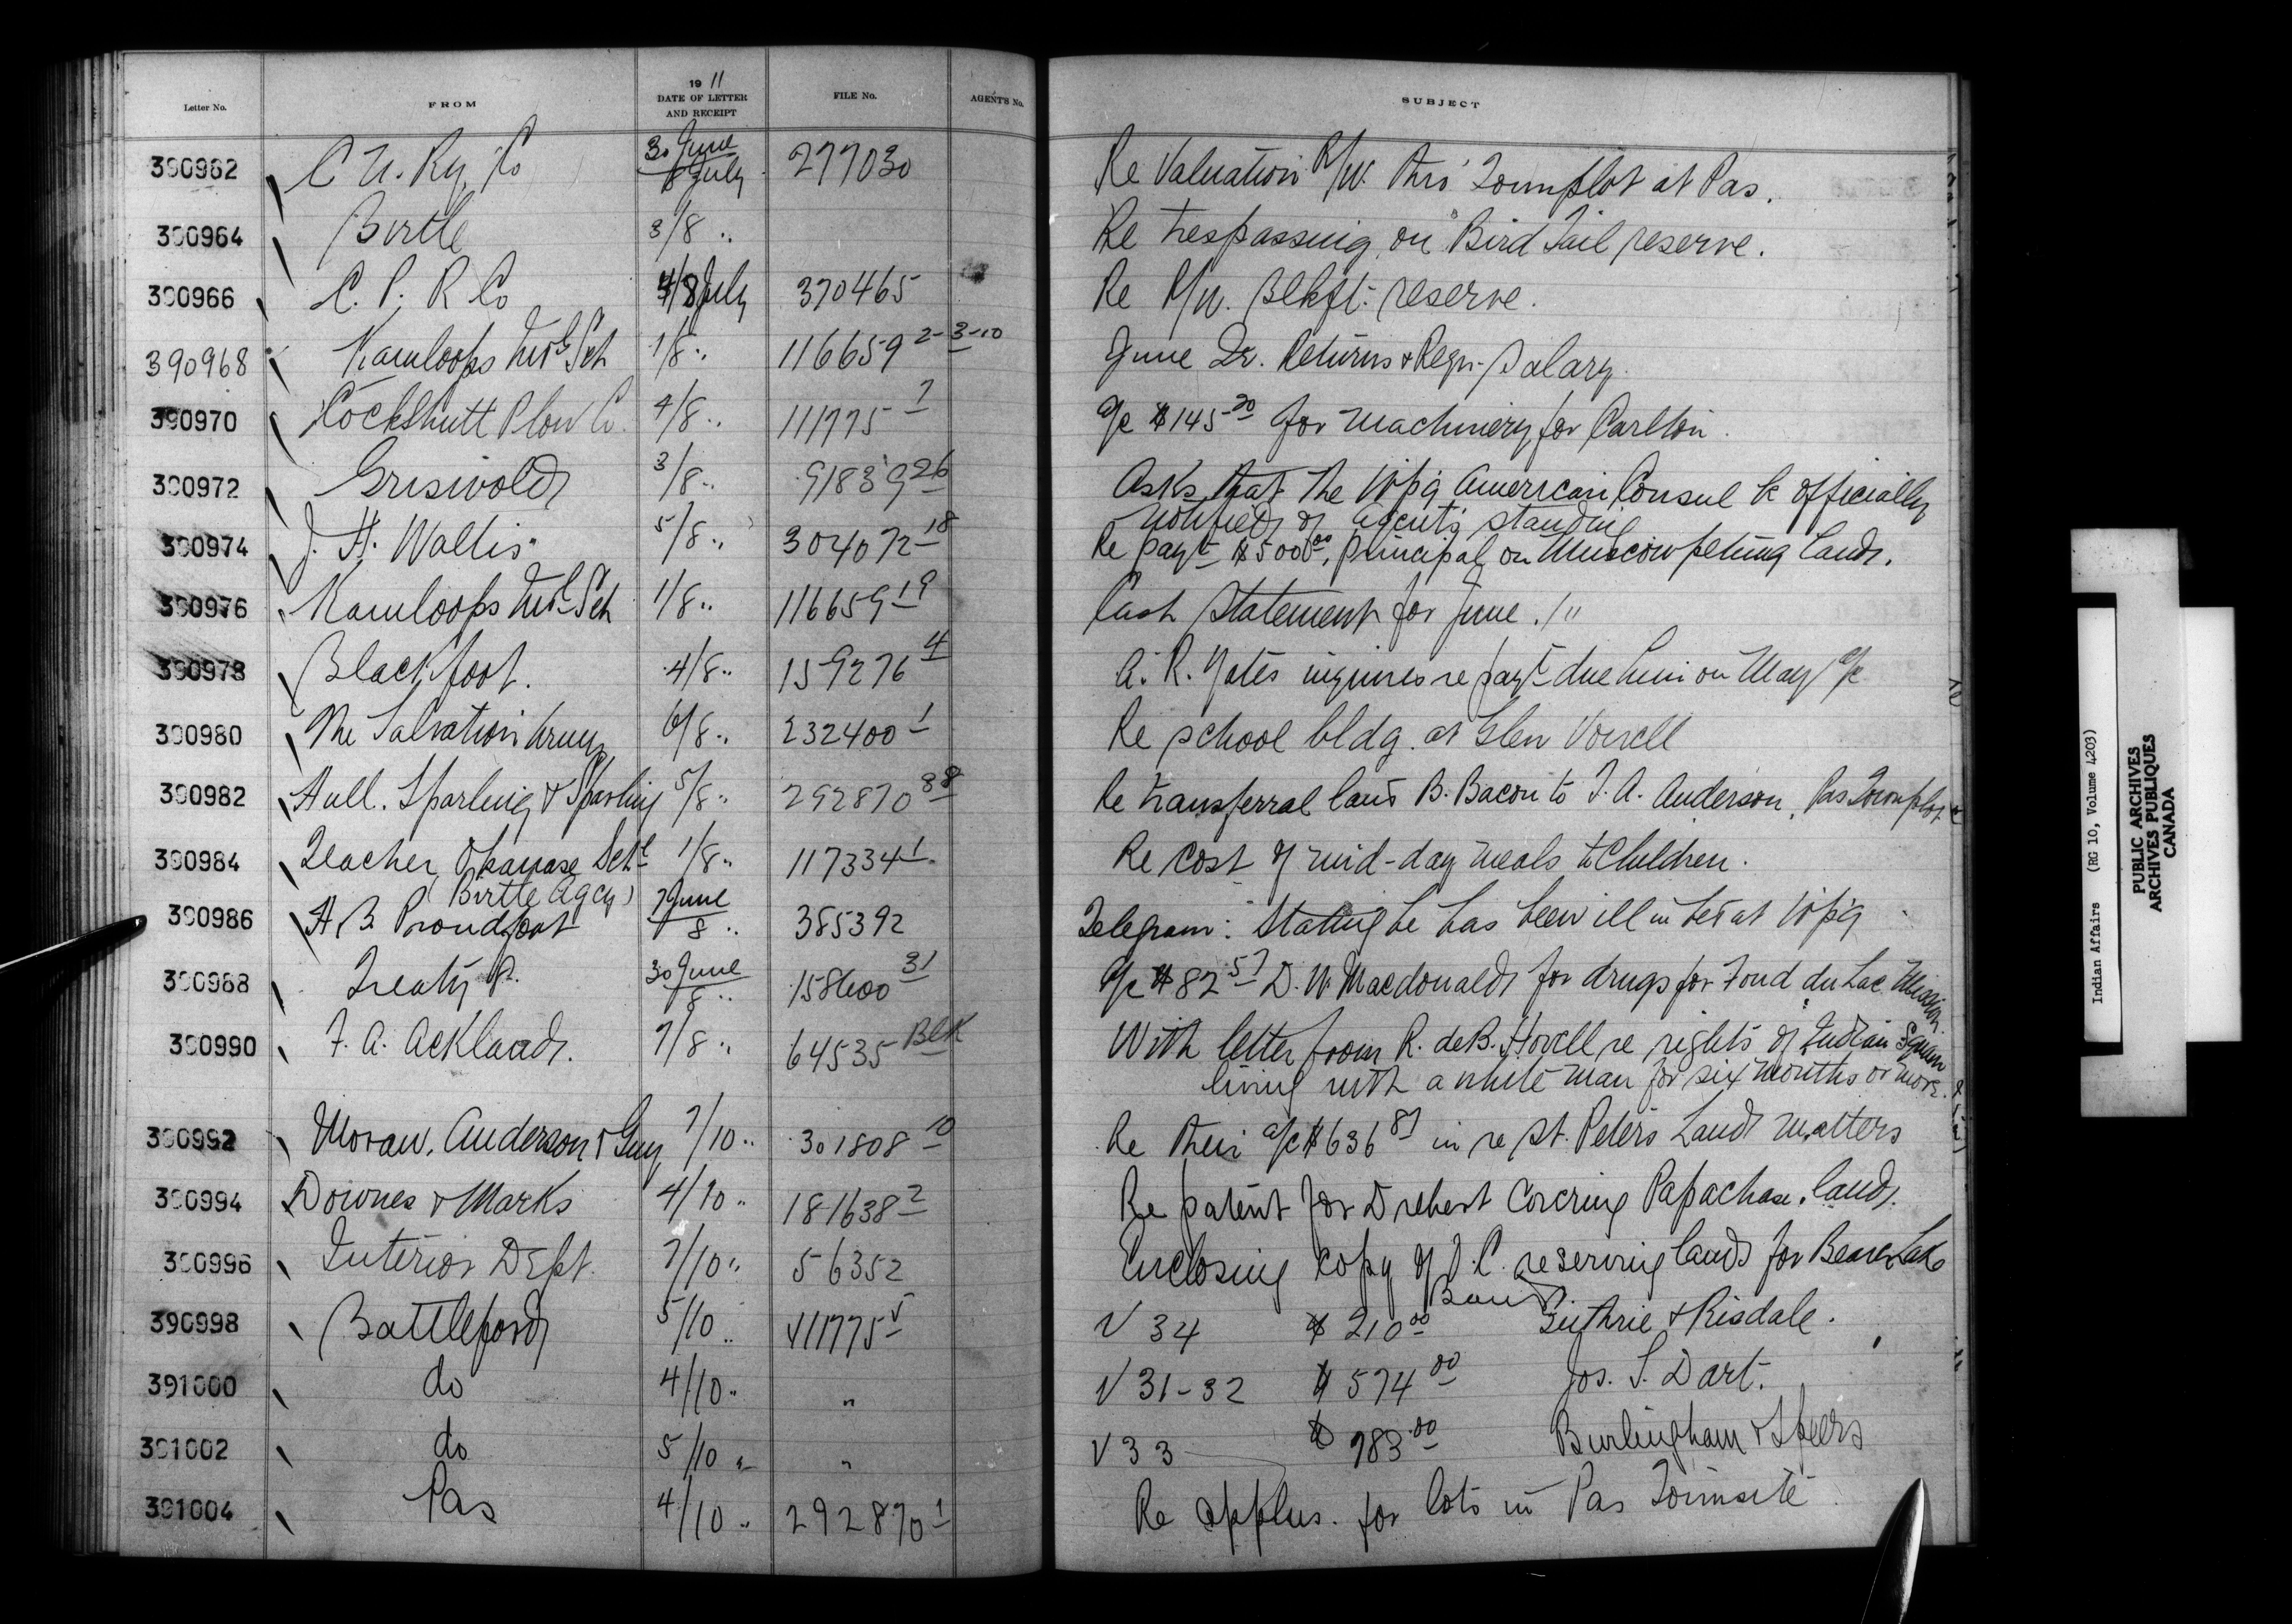 Letter No. FROM 1911 DATE OF LETTER AND RECEIPT FILE No. AGENT'S No. SUBJECT
390962 C N. Ry. Co 30 June / 8 July 277030 Re Valuation R/W. thro' Townplot at Pas.
390964 Birtle 3/8 " Re trespassing on Bird Tail reserve.
390966 C. P. R Co 4/8 July 370465 Re R/W. Blkft. reserve.
390968 Kamloops Indl Sch 1/8 " 116659 2-3-10 June Qr. Returns & Regr. Salary.
390970 Cockshutt Plow Co. 4/8 " 111775 7 a/c $145 20 for machinery for Carlton.
390972 Griswold 3/8 " 91839 26 Asks that the W'p'g American Consul be officially
notified of agent's standing
390974 J. H. Wallis 5/8 " 304072 18 Re payt $500 00, principal on Muscowpetung lands.
390976 Kamloops Indl Sch 1/8 " 116659 19 Cash Statement for June.
390978 Blackfoot. 4/8 " 159276 4 A. R. Yates inquires re payt due him on May a/c
390980 The Salvation Army 6/8 " 232400 1 Re school bldg. at Glen Vowell
390982 Hull. Sparling & Sparling 5/8 " 292870 88 Re transferral land B. Bacon to F. A. Anderson, Pas Townplot
390984 Teacher, Okanase Schl 1/8 " 117334 1 Re cost of mid-day meals to Children.
(Birtle Agcy)
390986 H B. Proudfoot 7 June / 8 " 385392 Telegram: Stating he has been ill in bed at W'p'g
390988 Treaty 8. 30 June / 8 " 158600 31 a/c $82 57 D. W. Macdonald for drugs for Fond du Lac Mission.
390990 F. A. Ackland. 7/8 " 64535 Blk With letter from R. deB. Hovell re rights of Indian Squaw
living with a white man for six months or more.
390992 Moran, Anderson & Guy 7/10 " 301808 10 Re their a/c $636 87 in re St. Peter's Land matters
390994 Downes & Marks 4/10 " 181638 2 Re patent for Drebert covering Papachase. land.
390996 Interior Dept. 7/10 " 56352 Enclosing copy of O.C. reserving lands for Beaver Lake
Band.
390998 Battleford 5/10 " 111775 5 V 34 $ 210 00 Guthrie & Risdale.
391000 do 4/10 " " V 31-32 $ 574 00 Jos. S. Dart.
391002 do 5/10 " " V 33 $ 783 00 Burlingham & Speers
391004 Pas 4/10 " 292870 1 Re applns. for lots in Pas Townsite
Indian Affairs (RG 10, Volume 4203)
PUBLIC ARCHIVES
ARCHIVES PUBLIQUES
CANADA